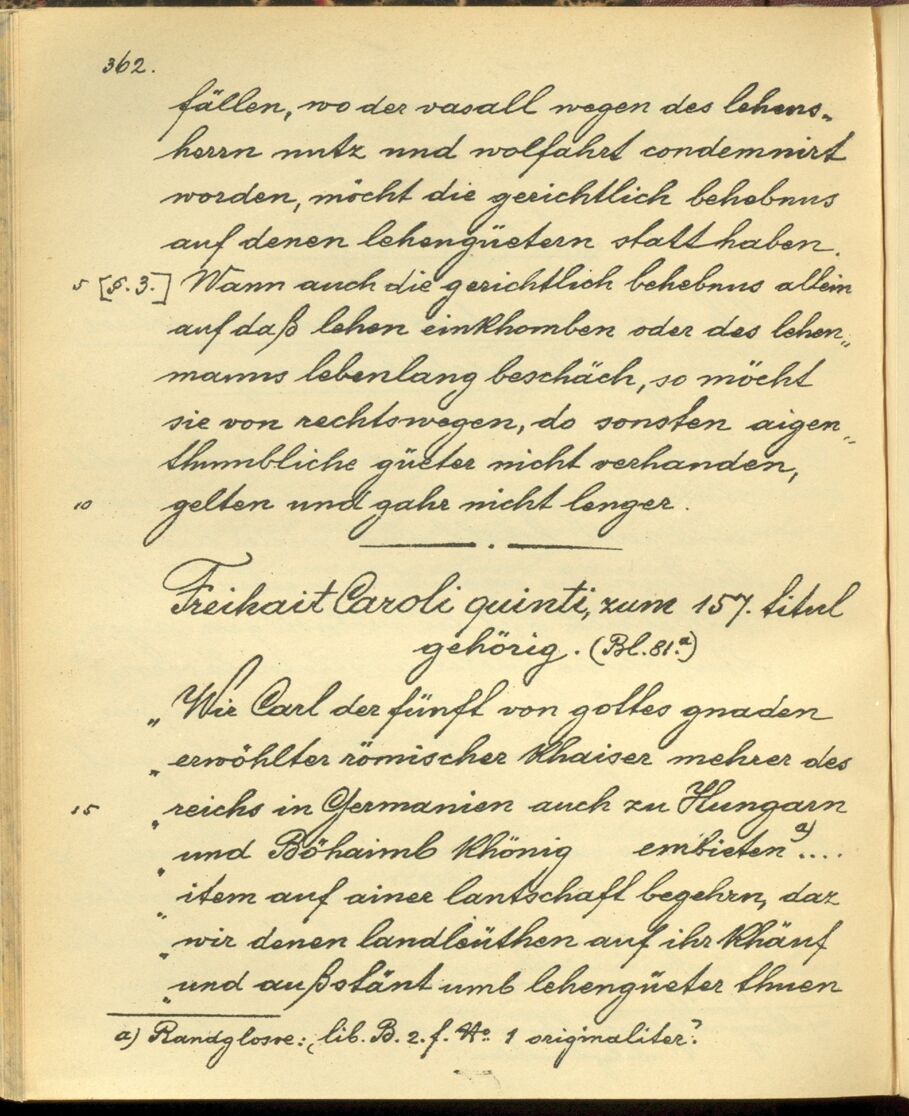 362.
fällen, wo der vasall wegen des lehens„
herrn nutz und wolfahrt condemnirt
worden, möcht die gerichtlich behebnus
auf denen lehengüetern statt haben.
5 [§. 3.] Wann auch die gerichtlich behebnus allein
auf daß lehen einkhomben oder des lehen„
manns lebenlang beschäch, so möcht
sie von rechtswegen, do sonsten aigen„
thumbliche güeter nicht verhanden,
10 gelten und gahr nicht lenger.
Freihait Caroli quinti, zum 157. titul
gehörig. (Bl. 81.a)
„Wir Carl der fünft von gottes gnaden
„erwöhlter römischer Khaiser mehrer des
15 „reichs in Germanien auch zu Hungarn
„und Böhaimb Khönig embieten a)....
„item auf ainer lantschaft begehrn, daz
„wir denen landleüthen auf ihr Khäuf
„und außstänt umb lehengüeter thuen
a) Randglosse: lib. B. 2. f. No. 1 originaliter?